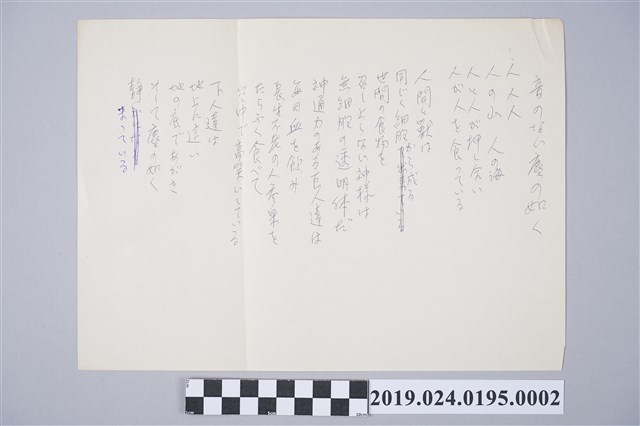 音のない塵の如く
人人人
人の山 人の海
人と人が押し合い
人が人を食っている
人間と獣は
同じく細胞から成る
世間の食物を
召しよしない神様は
無細胞の透明体だ
神通力のある巨人達は
毎日血を飲み
長生不老の人参果を
たらふく食べて
下人達は
地上を這い
地の底であがき
そして塵の如く
静
まっている
2019.024.0195.0002